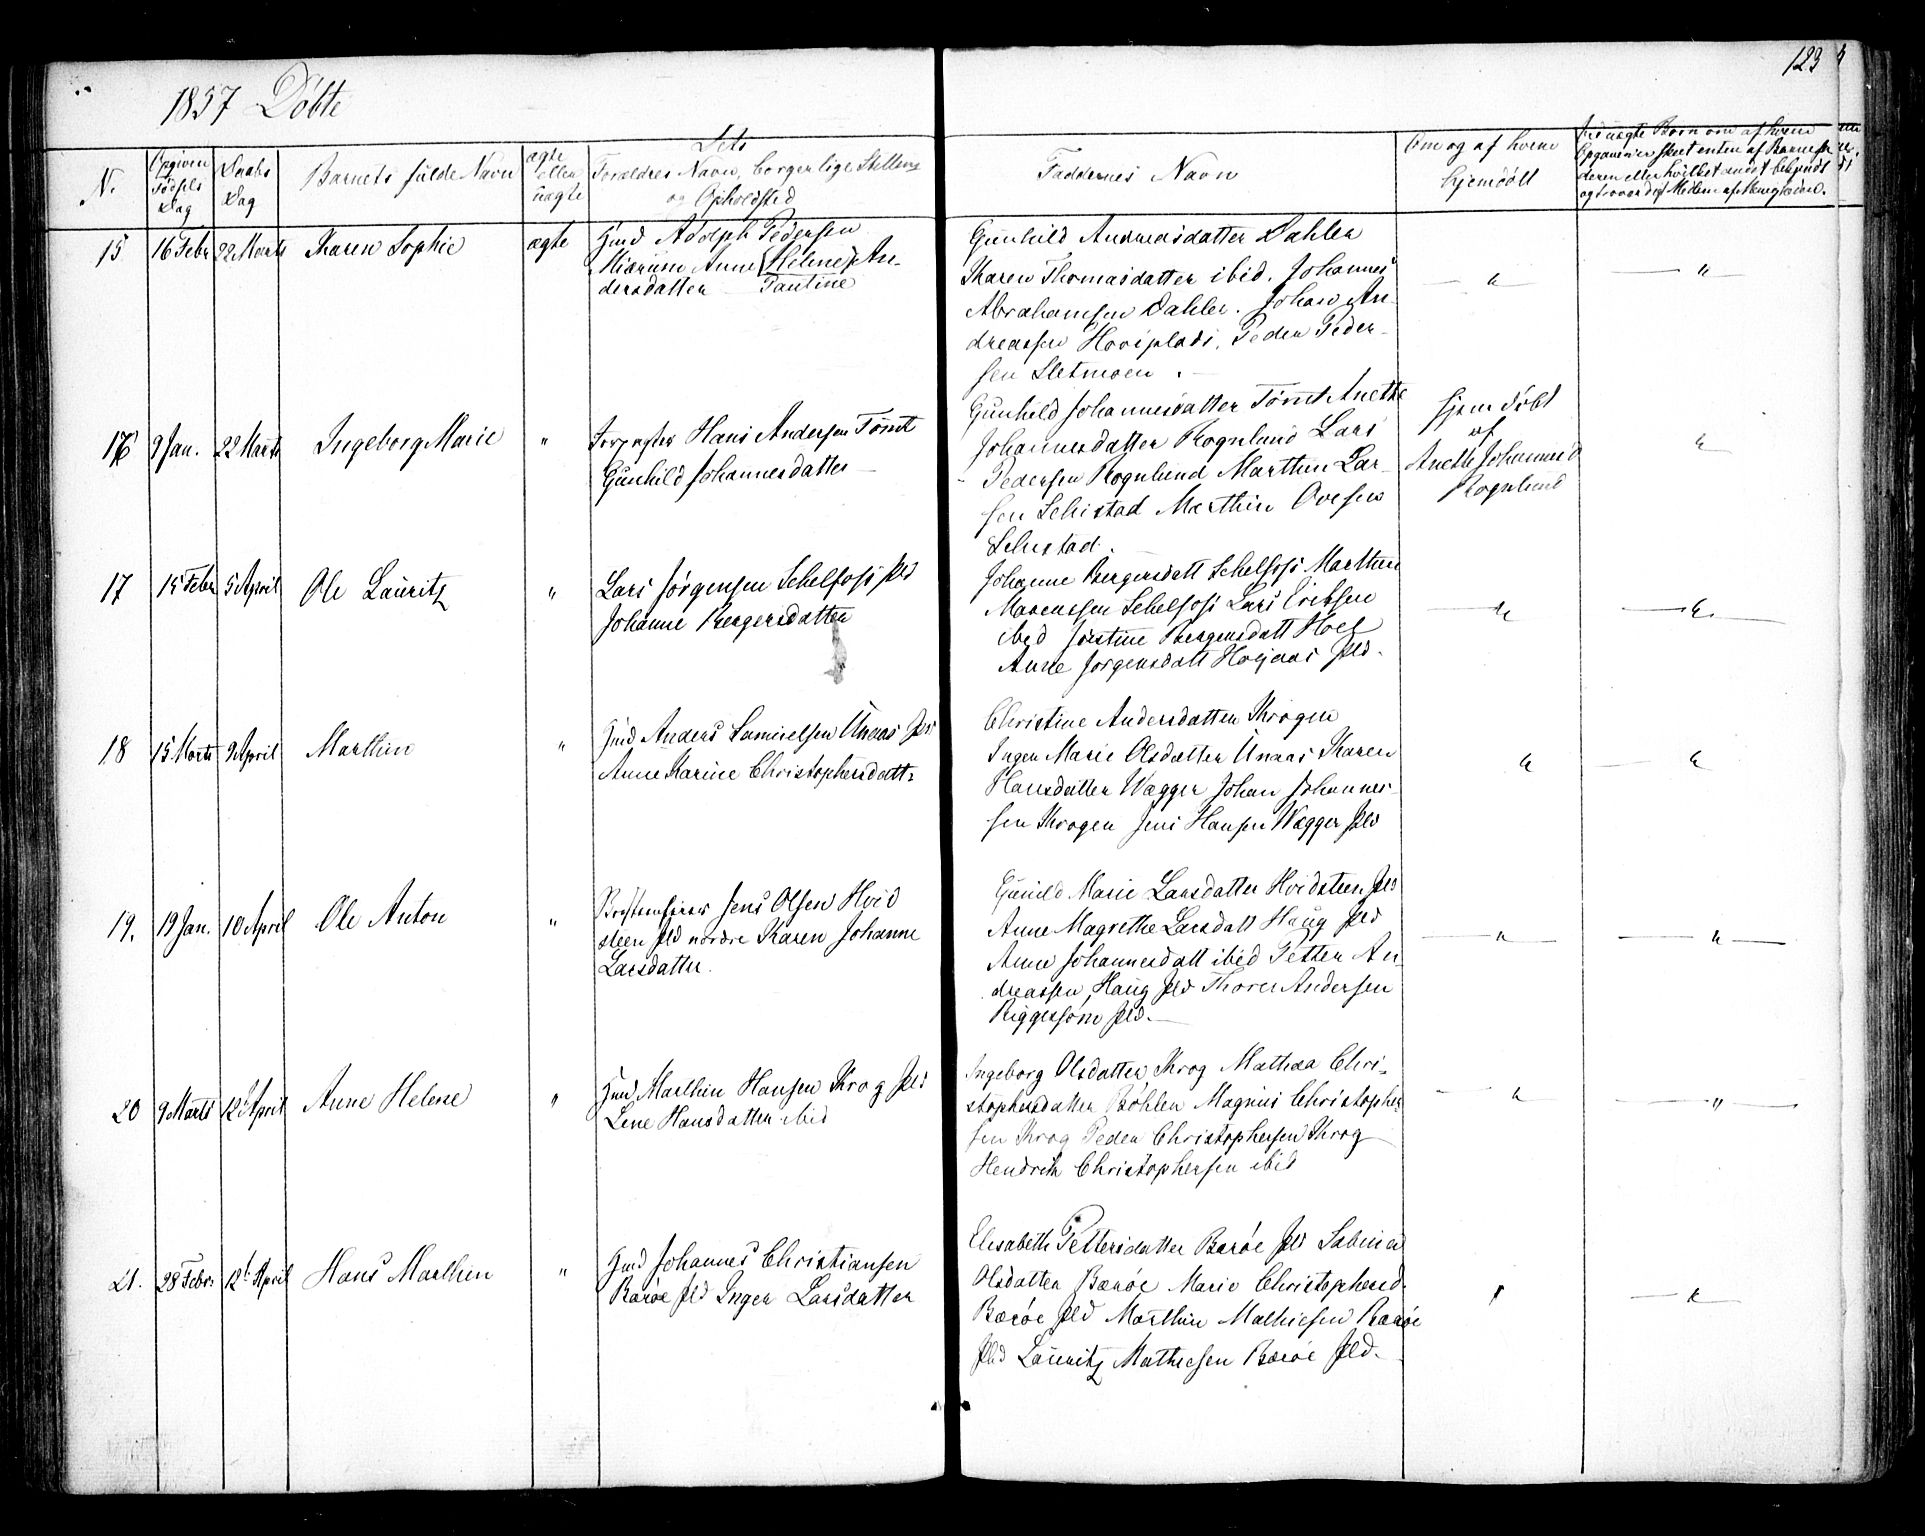 123
1857 Döbte
N.
Opgiven Födsels Dag
Daabs Dag
Barnets fulde Navn
ægte eller uægte
Dets Forældres Navn, borgerlige Stilling og Opholdsted
Faddernes Navn
Om og af hvem hjemdöbt
15
16 Febr
22 Marts
Karen Sophie
ægte
Gmd Adolph Pedersen
Anne (Helene) An-
dersdatter Pautine
Gunhild Andreasdatter Dahler
Karen Thomasdatter ibid. Johannes
Abrahamsen Dahler. Johan An-
dreassen Hovsplads. Peder Peder-
sen Sletmoen.
"
"
16
9 Jan.
22 Marts
Ingeborg Marie
"
Hans Andersen Tömt
Gunhild Johannesdatter
Gunhild Johannesdatter Tömt Anethe
Johannesdatter Rognlund Lars
Pedersen Rognlund Marthin Lar-
sen Schistad Marthin Ovesen
Schistad.
hjemdöbt
af
Anethe Johannesd
Rognlund
"
17
15 Febr
5 April
Ole Lauritz
"
Lars Jörgensen Schelfoss Pld
Johanne Bergersdatter
Johanne Bergersdatt Schelfoss Marthin
Schelfoss Lars Eriksen
ibid Justine Bergersdatt Hoel
Anne Jörgensdatt Höijaas Pld.
"
"
18
15 Marts
9 April
Marthin
"
Gmd Anders Samuelsen Unaas Pld
Anne Karine Christophersdatt:
Christine Andersdatter Krogen
Inger Marie Olsdatter Unaas Karen
Hansdatter Wagger Johan Johannes-
sen Krogen Jens Hansen Wægger Pld
"
"
19.
19 Jan.
10 April
Ole Anton
"
Jens Olsen Hvid
steen Pld nordre Karen Johanne
Larsdatter.
Gunild Marie Larsdatter Hvidsteen Pld
Anne Magrethe Larsdatt Haug Pld
Anne Johannesdatt ibid Petter An-
dreassen, Haug Pld Thorer Andersen
Pld.
"
"
20
9 Marts
12 April
Anne Helene
"
Gmd Marthin Hansen Krog Pld
Lene Hansdatter ibid
Ingeborg Olsdatter Krog Mathea Chri-
stophersdatter Böhler Magnus Christopher
sen Krog Peder Christophersen Krog
Hendrik Christophersen ibid
"
"
21.
28 Febr:
12t April
Hans Marthin
"
Gmd Johannes Christiansen
Baröe Pld Inger Larsdatter
Elisabeth Pettersdatter Baröe Pld Sabina
Olsdatter Baröe Marie Christophersd.
Baröe Pld Marthin Mathiesen Baröe
Pld Lauritz Mathiesen Baröe Pld.
"